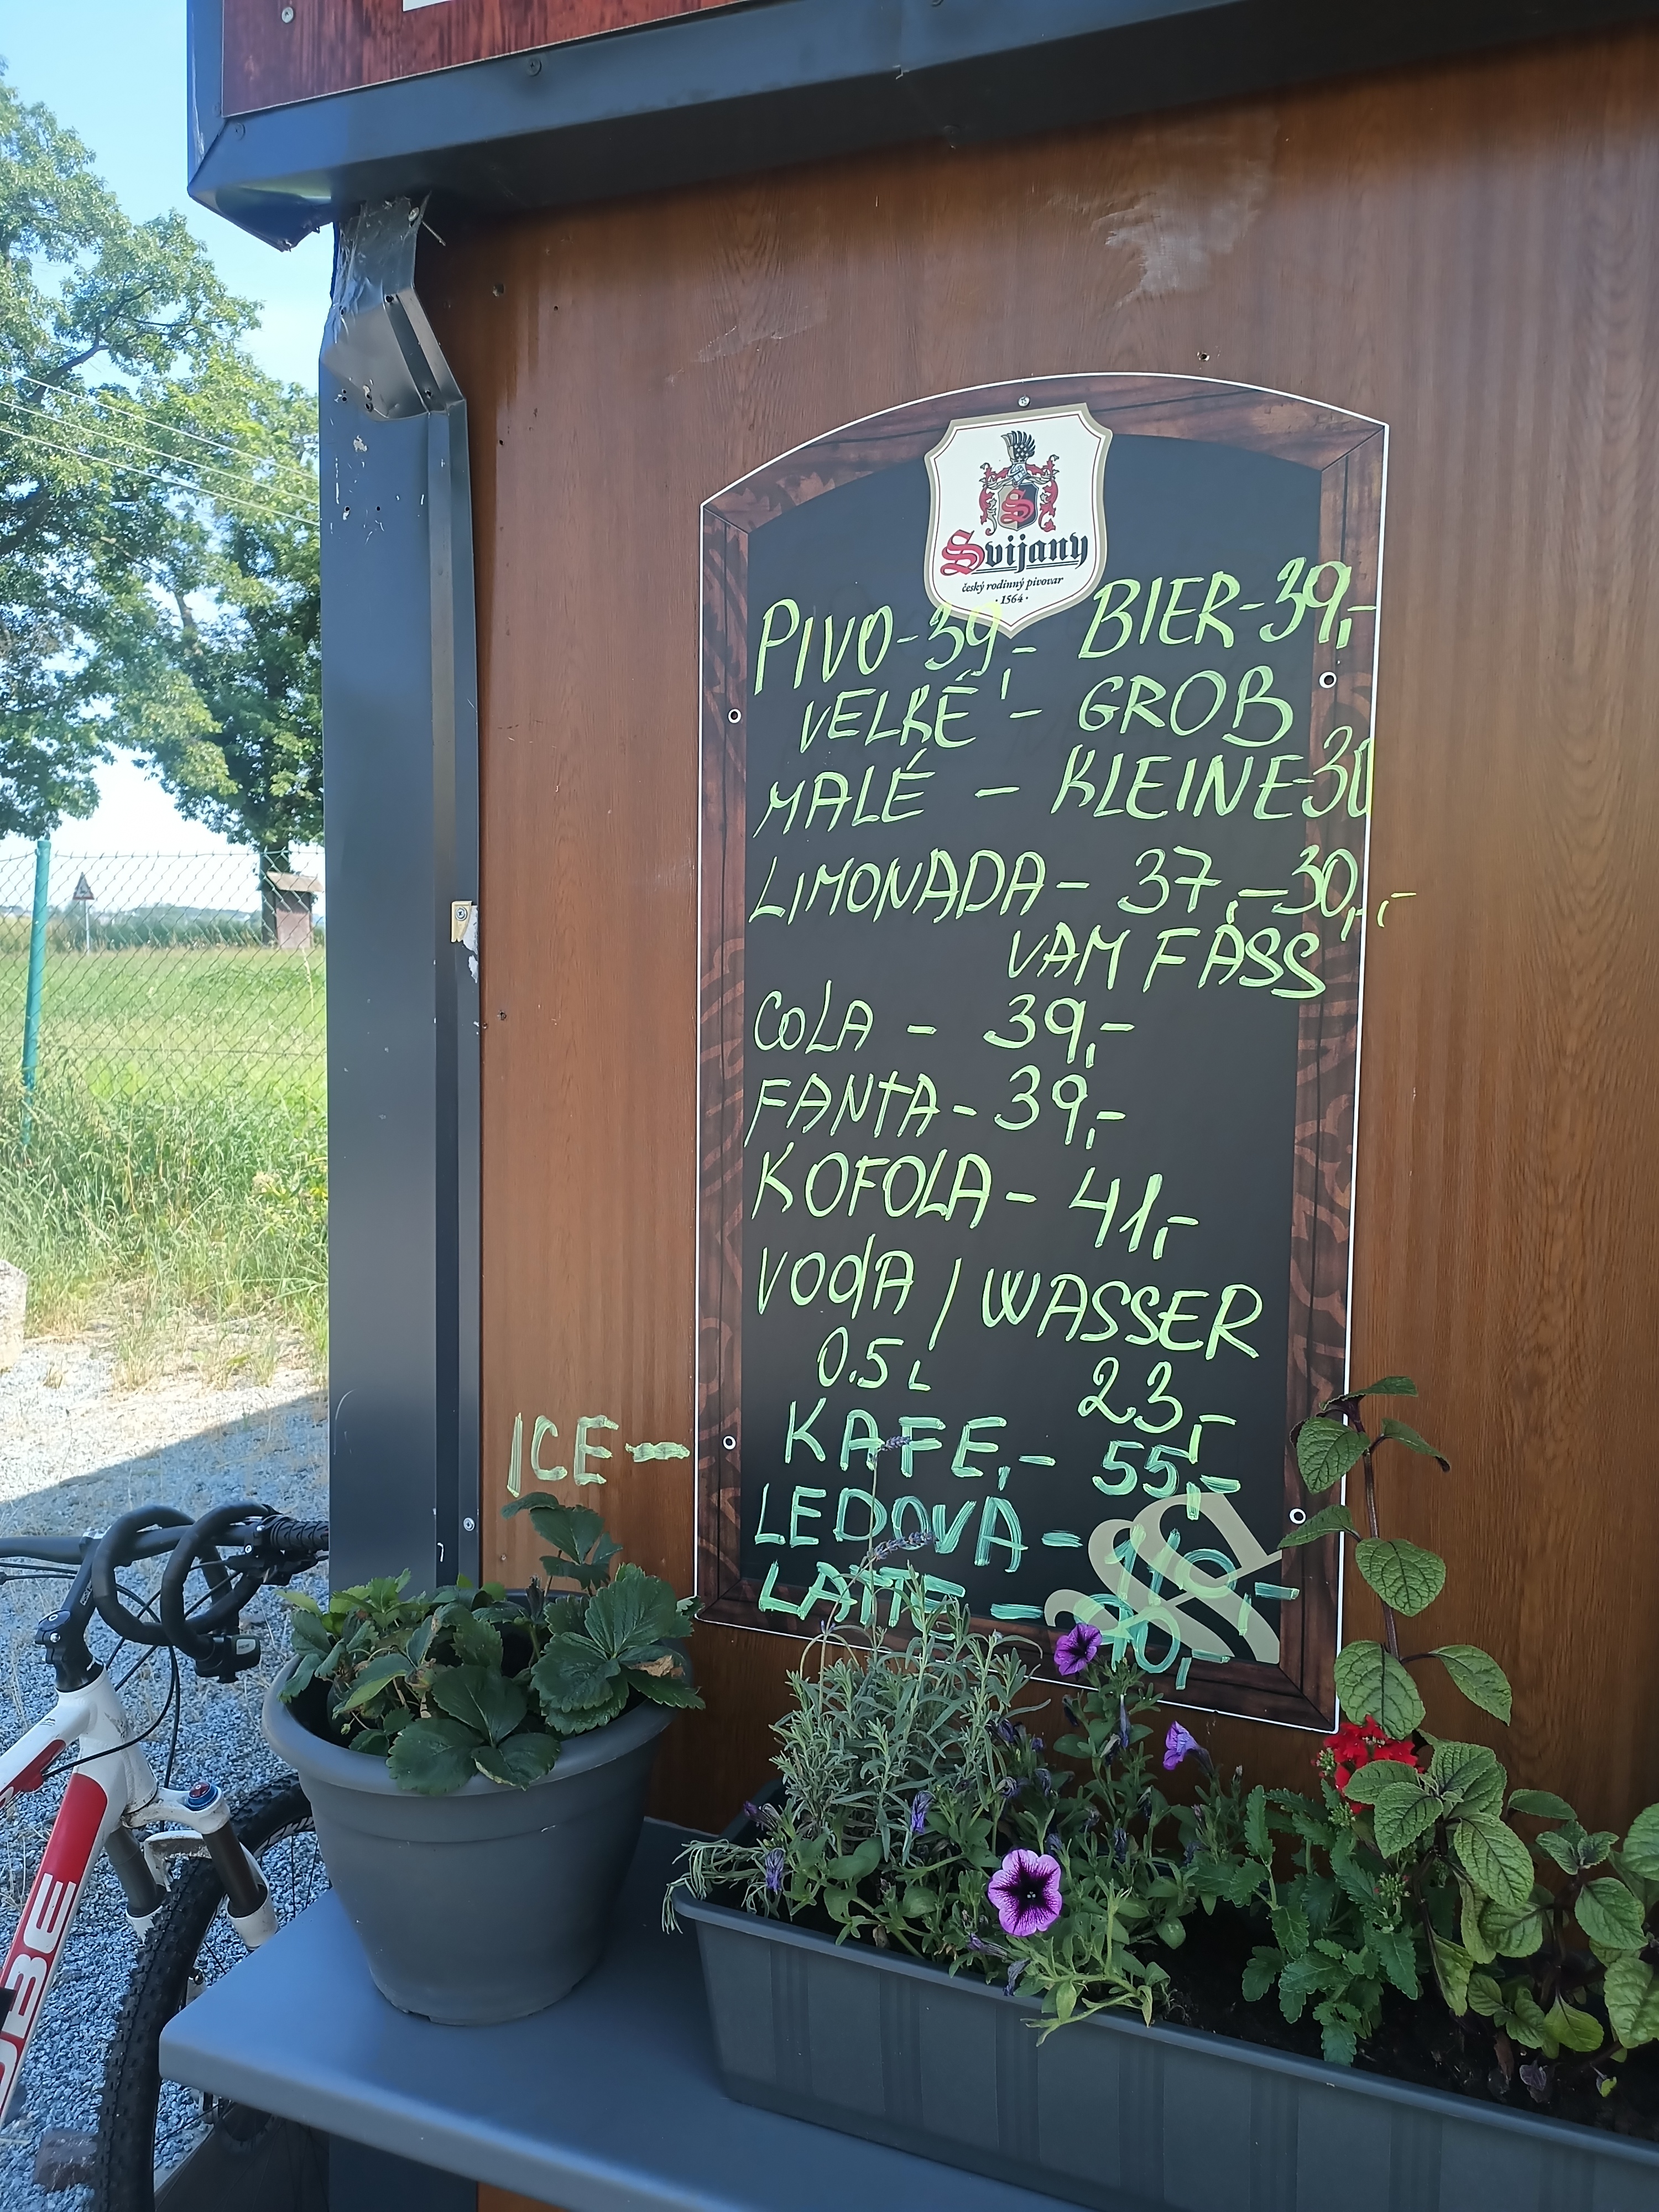 S
Svijany
český rodinný pivovar
· 1564 ·
PIVO-39,- BIER-39,-
VELKÉ - GROB
MALÉ - KLEINE-30
LIMONADA- 37,-30,-,-
VAM FASS
COLA - 39,-
FANTA- 39,-
KOFOLA- 41,-
VODA / WASSER
0.5L 23,-
KAFE,- 55,-
ICE- LEDOVÁ-
LATTE -